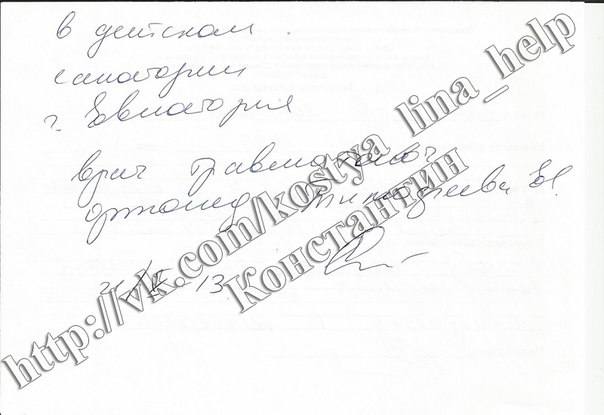 в детском
санатории
г. Евпатория
врач травматолог
ортопед Тимофеева
13
http://vk.com/kostya_lina_help
Константин